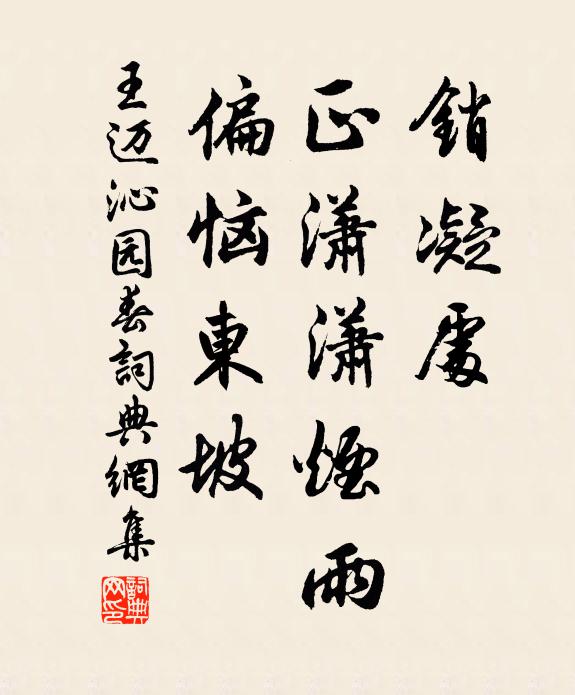 銷凝處
正瀟瀟煙雨
偏恼東坡
王迈沁园春詞典網集
詞典网印